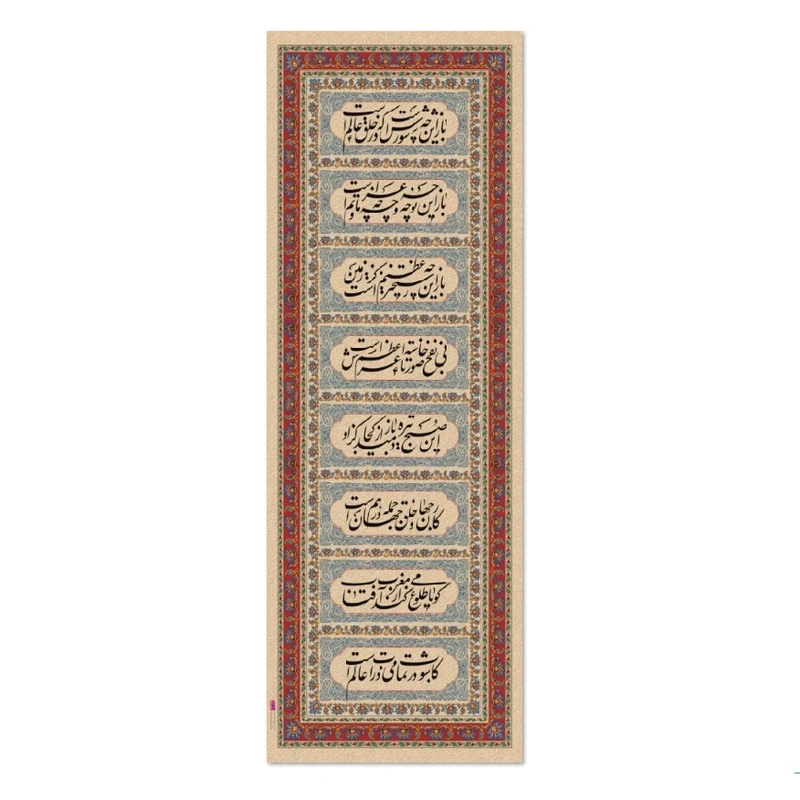 باز این چه شورش است که در خلق عالم است
باز این چه نوحه و چه عزا و چه ماتم است
باز این چه رستخیز عظیم است کز زمین
بی نفخ صور خاسته تا عرش اعظم است
این صبح تیره باز دمید از کجا کزو
کار جهان و خلق جهان جمله در هم است
گویا طلوع می کند از مغرب آفتاب
کاشوب در تمامی ذرات عالم است